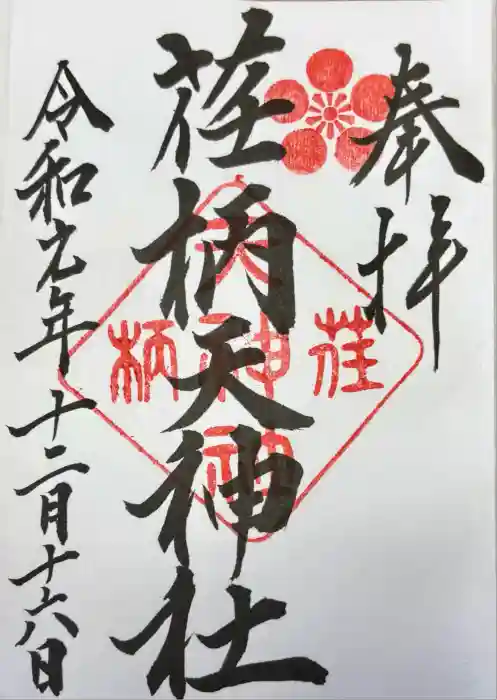 奉拝
荏柄天神社
令和元年十二月十六日
荏
柄